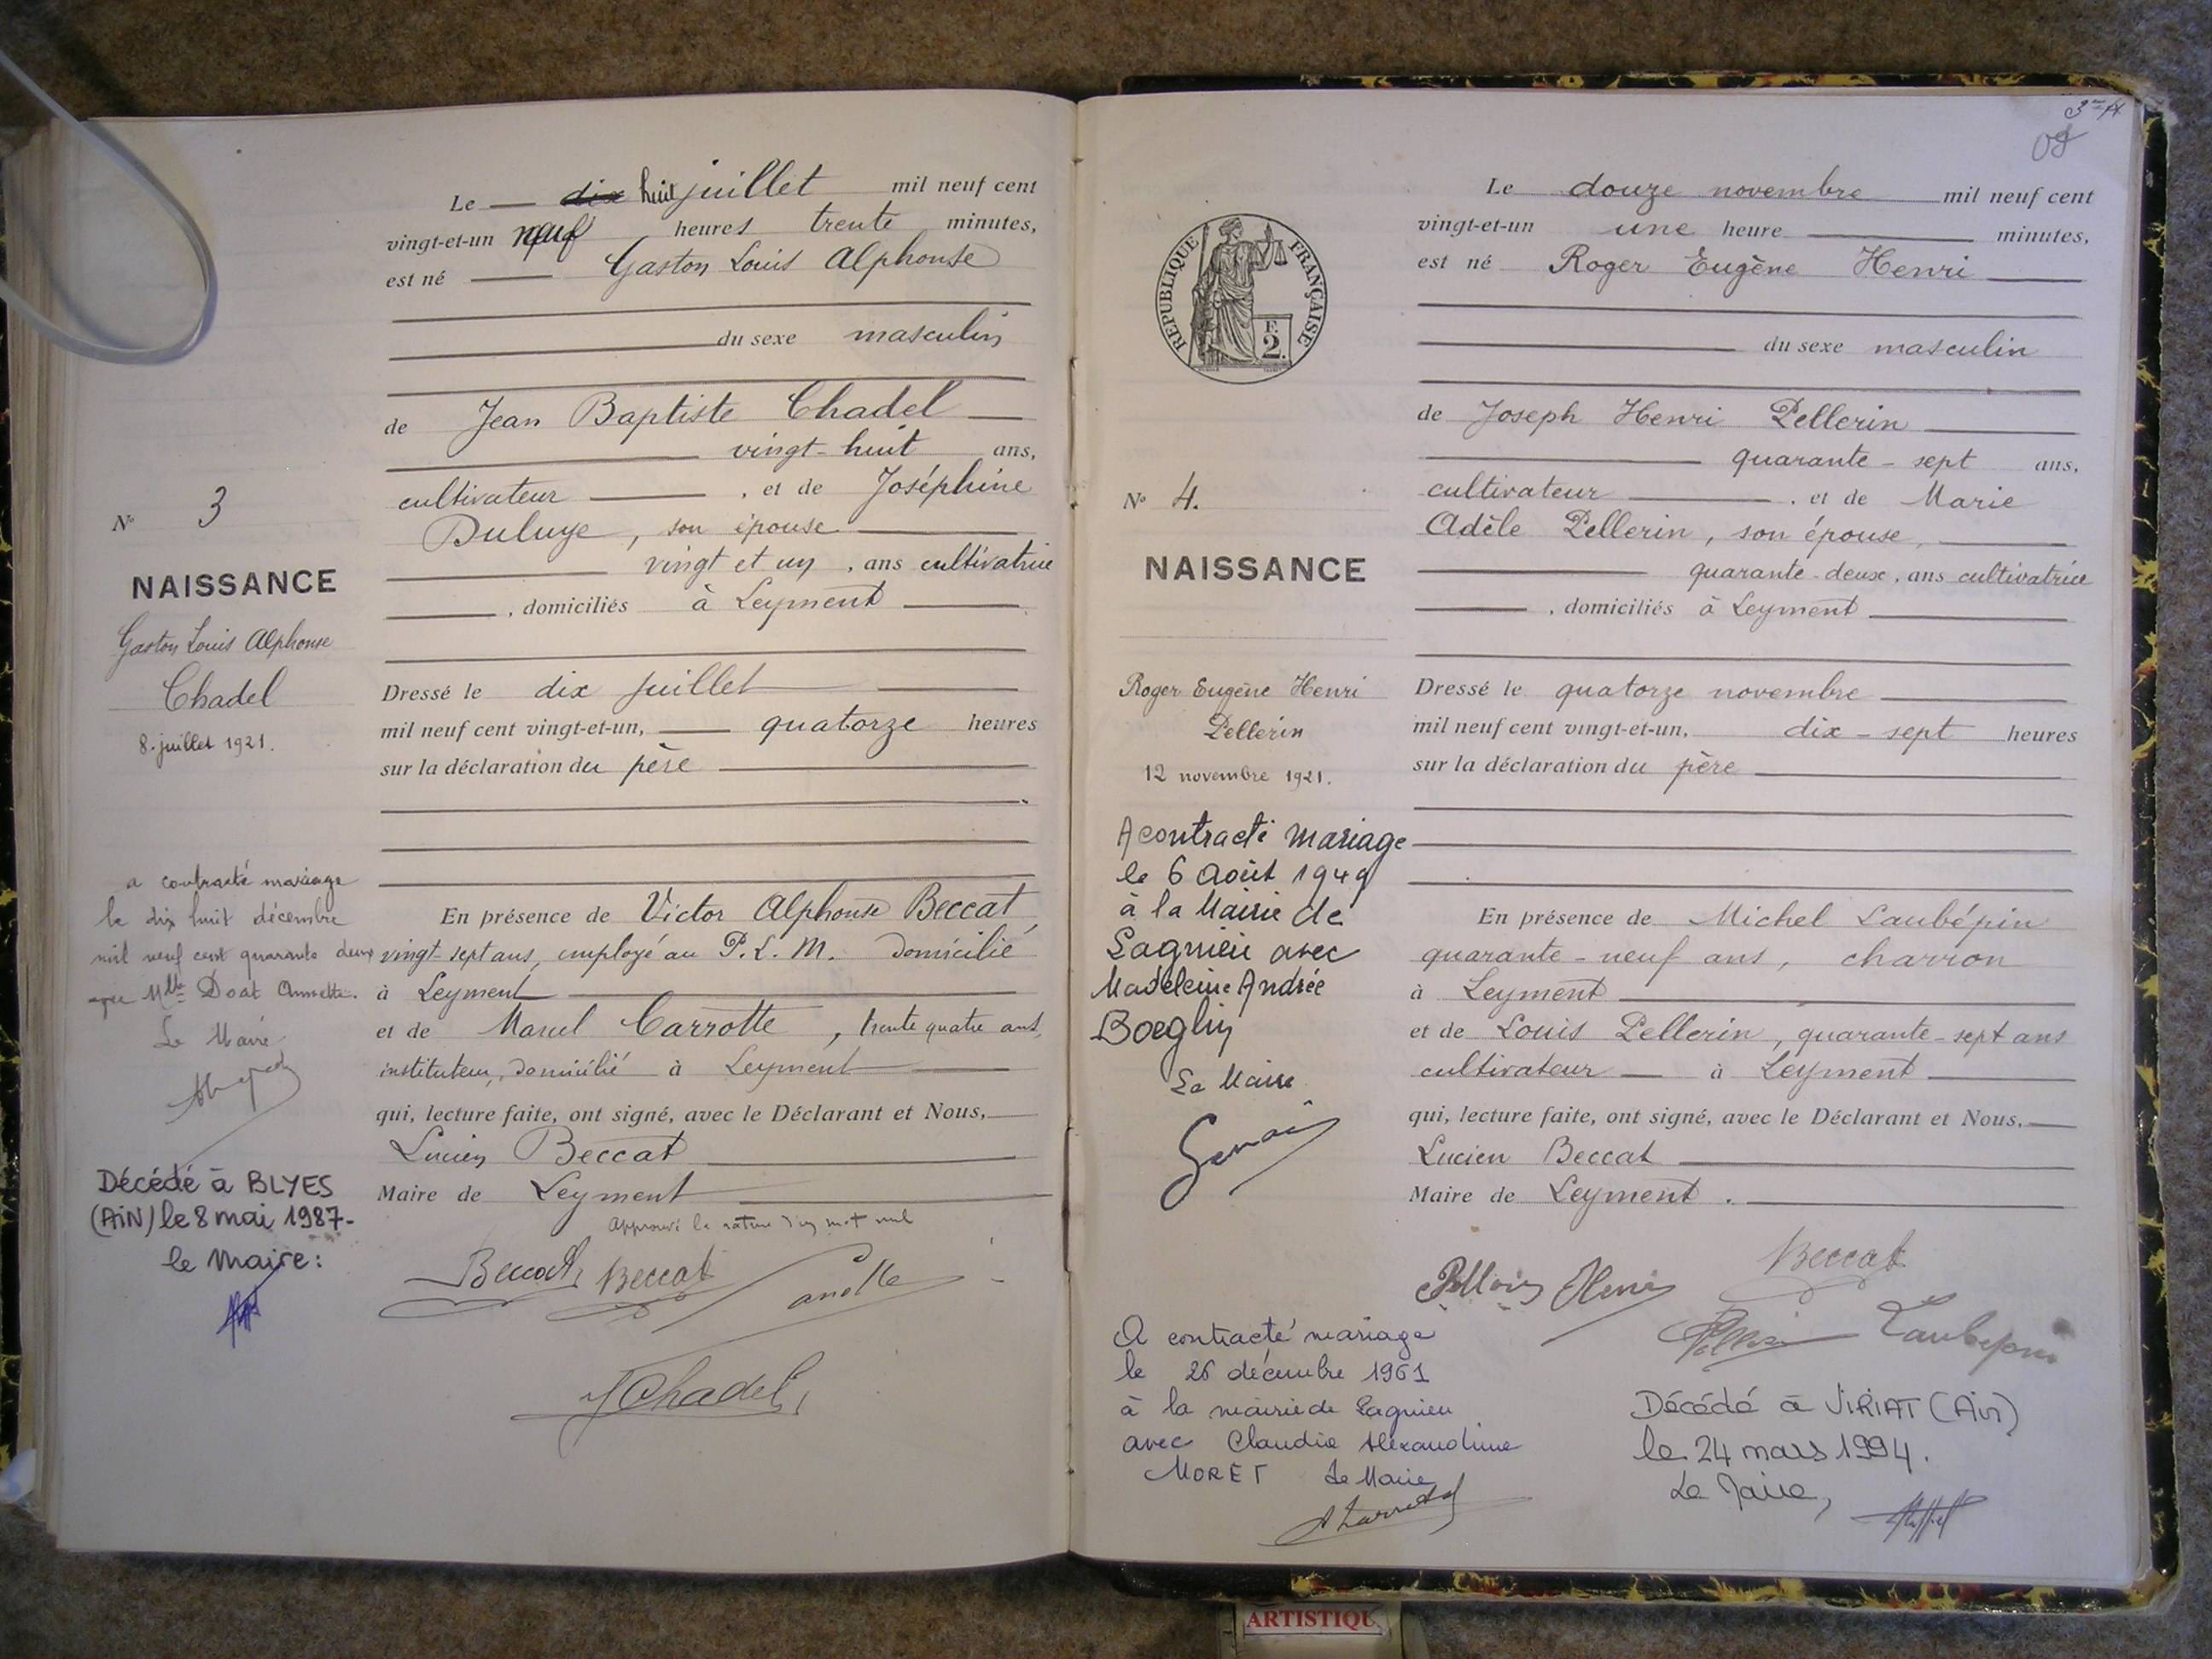 Le dix huit juillet mil neuf cent
vingt-et-un neuf heures trente minutes,
est né Gaston Louis Alphonse
du sexe masculin
de Jean Baptiste Chadel
vingt-huit ans,
cultivateur , et de Joséphine
Duluye, son épouse
vingt et un , ans cultivatrice
, domiciliés à Leyment
Dressé le dix juillet
mil neuf cent vingt-et-un, quatorze heures
sur la déclaration du père
En présence de Victor Alphonse Beccat,
vingt-sept ans, employé au P.L.M. domicilié
à Leyment
et de Marcel Carrotte, trente quatre ans,
instituteur, domicilié à Leyment
qui, lecture faite, ont signé, avec le Déclarant et Nous,
Lucien Beccat
Maire de Leyment
Approuvé la rature d'un mot nul
Beccat Beccat
J Chadel
N° 3
NAISSANCE
Gaston Louis Alphonse
Chadel
8 juillet 1921.
a contracté mariage
le dix huit décembre
mil neuf cent quarante deux
Mlle Doat Annette.
Le Maire
Décédé à BLYES
(AiN) le 8 mai 1987-
le Maire:
3
Le douze novembre mil neuf cent
vingt-et-un une heure minutes,
est né Roger Eugène Henri
du sexe masculin
de Joseph Henri Pellerin
quarante-sept ans,
cultivateur , et de Marie
Adèle Pellerin, son épouse,
quarante-deux, ans cultivatrice
, domiciliés à Leyment
Dressé le quatorze novembre
mil neuf cent vingt-et-un, dix-sept heures
sur la déclaration du père
En présence de Michel Laubépin
quarante-neuf ans, charron
à Leyment
et de Louis Pellerin, quarante-sept ans
cultivateur à Leyment
qui, lecture faite, ont signé, avec le Déclarant et Nous,
Lucien Beccat
Maire de Leyment.
Beccat
Laubépin
Décédé à VIRIAT (Ain)
le 24 mars 1994.
Le Maire,
REPUBLIQUE FRANÇAISE
F.
2.
N° 4.
NAISSANCE
Roger Eugène Henri
Pellerin
12 novembre 1921.
A contracté mariage
le 6 Août 1949
à la Mairie de
Lagnieu avec
Madeleine Andrée
Boeglin
Le Maire
A contracté mariage
le 26 décembre 1961
à la mairie de Lagnieu
avec Claudia Alexandrine
MORET Le Maire
ARTISTIQU